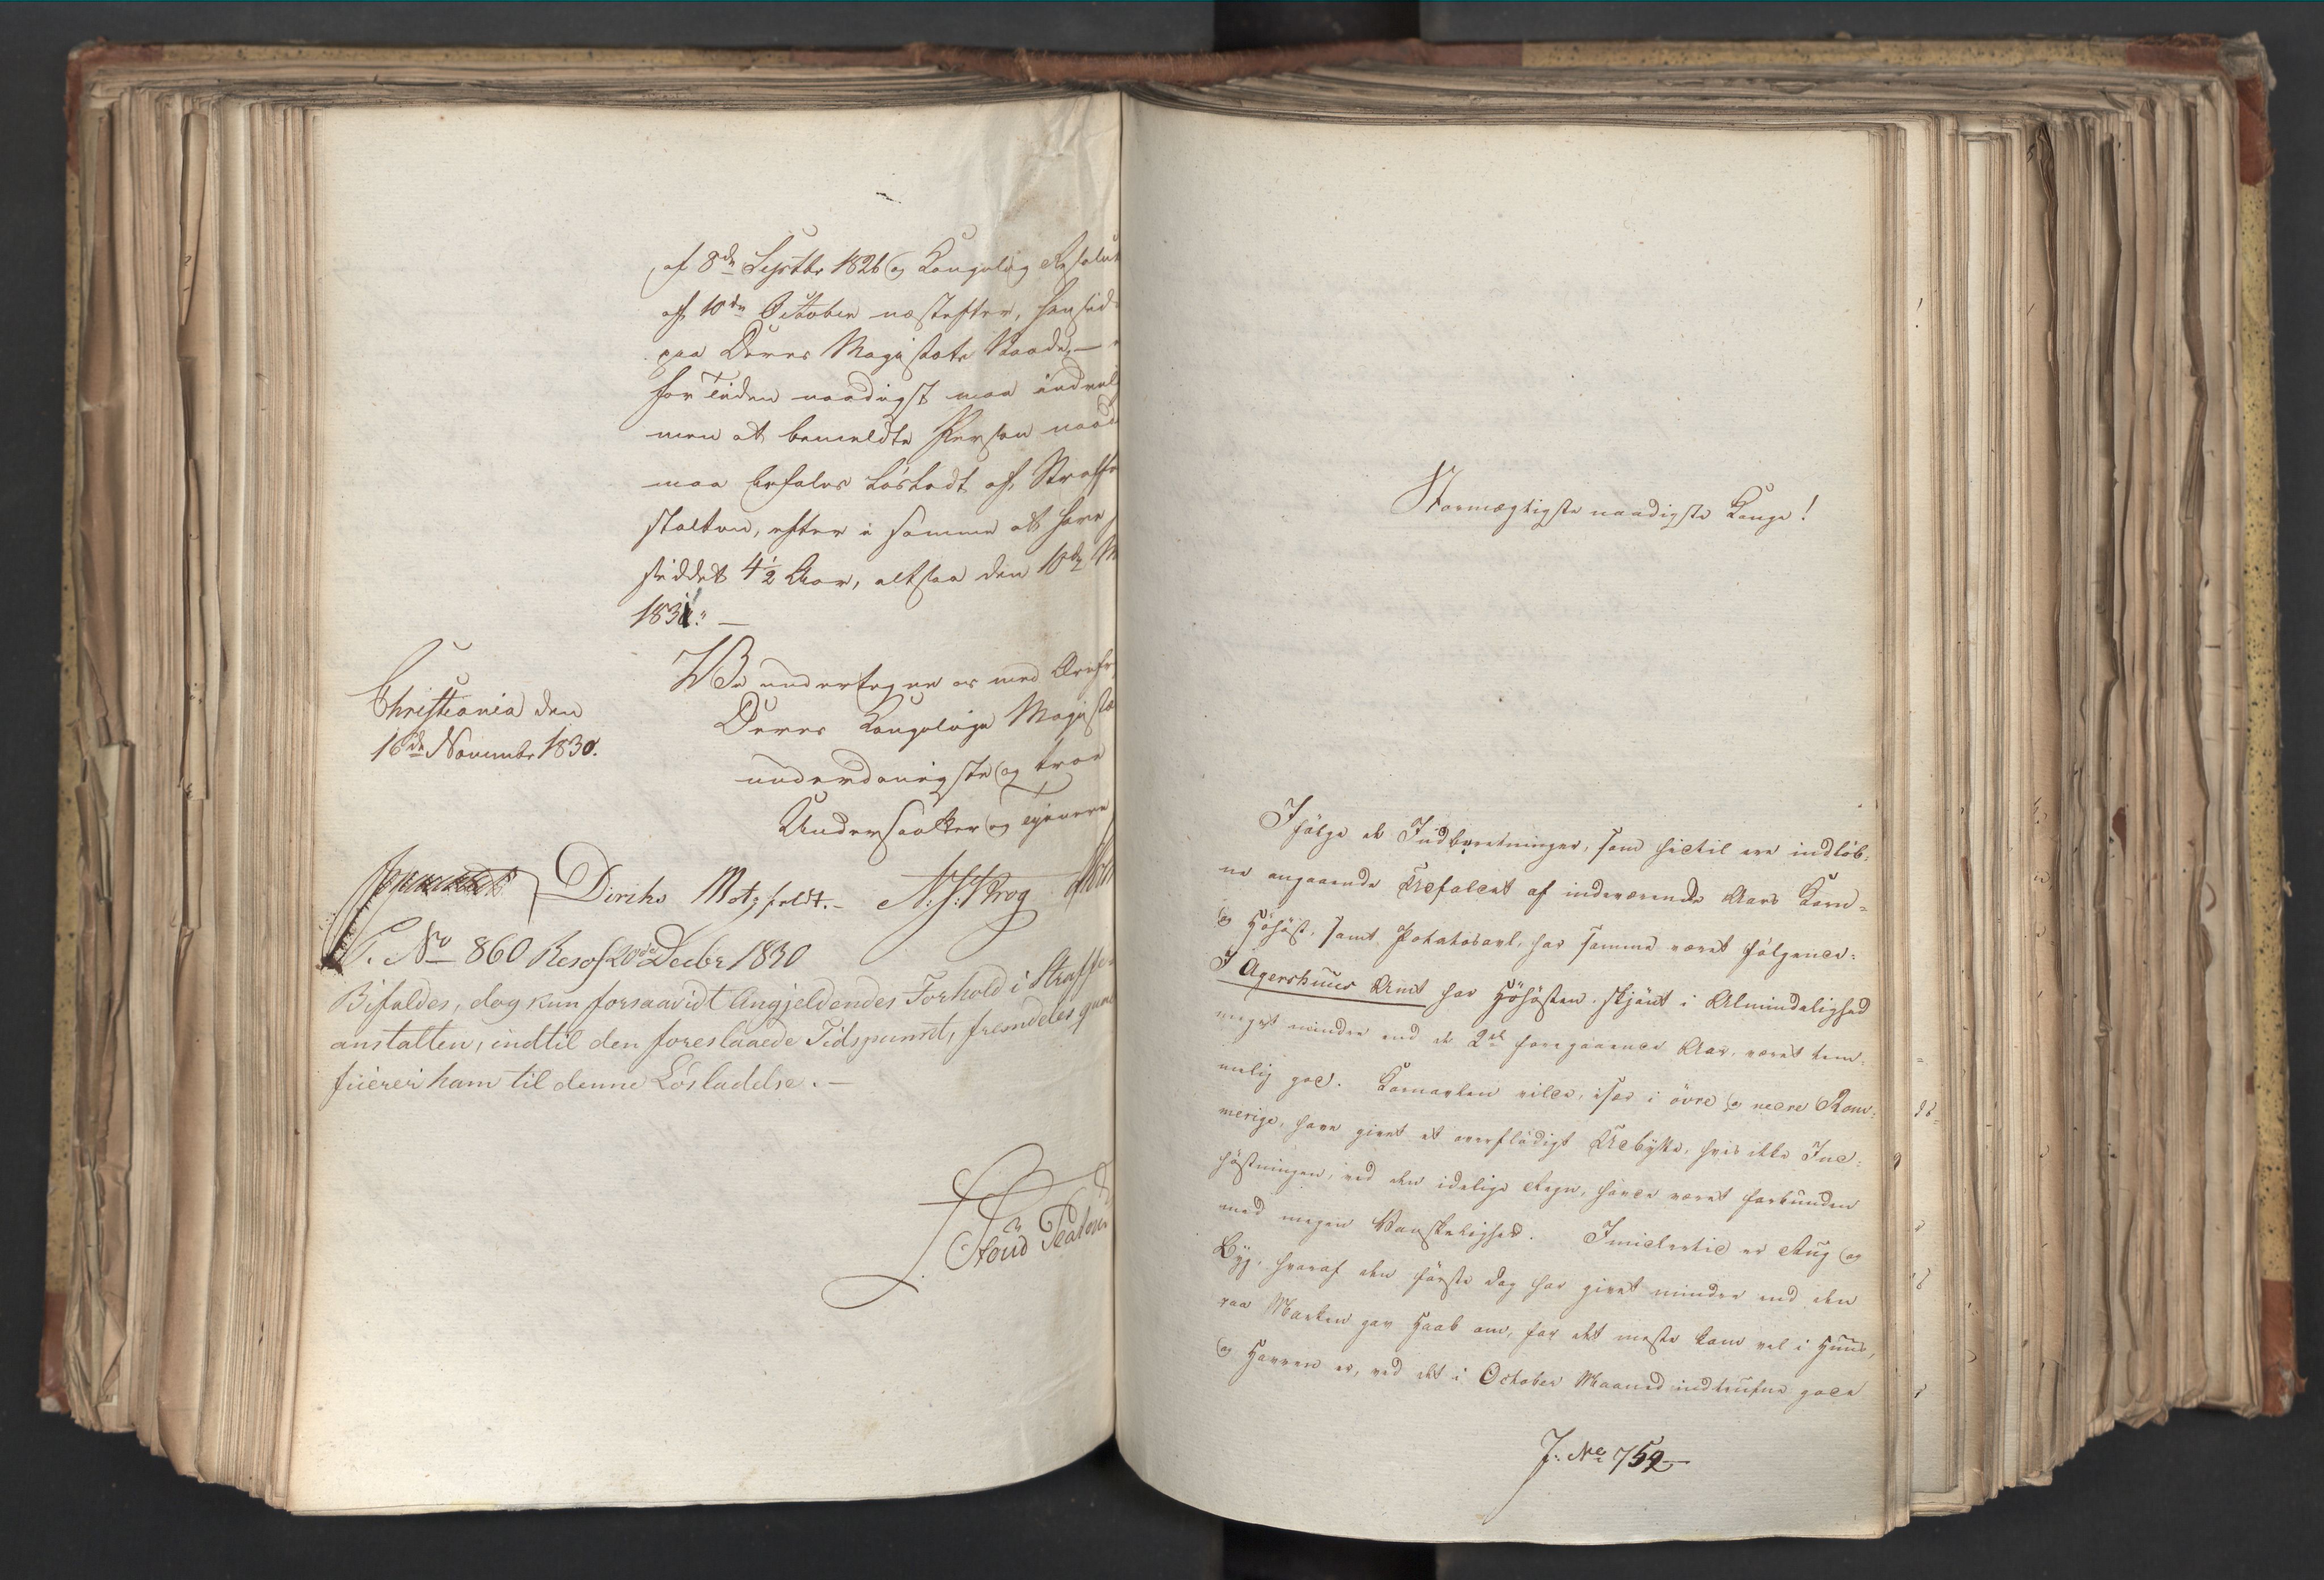 af 8de Septbr 1826 og Kongelig Resolut
af 10de October næstefter, hensed
paa Deres Majestæts Naade, —
for Tiden naadigst maa indvil
men at bemeldte Person naad
maa befales løsladt af Straffe
stalten, efter i samme at have
siddet 4½ Aar, altsaa den 10de M
1831. —
Vi undertegne os med Ærefr
Deres Kongelige Majestæ
underdanigste og troe
Undersaatter og Tjenere
Christiania den
16de Novembr 1830.
Diriks Motzfeldt. N. J. Krog
No 860 Resol. 20de Decbr 1830
Bifaldes, dog kun forsaavidt Angjeldendes Forhold i Straffe
anstalten, indtil den foreslaaede Tidspunct, fremdeles qvali
ficerer ham til denne Løsladelse. —
Stormægtigste naadigste Konge!
Ifølge de Indberetninger, som hidtil ere indløb-
ne angaaende Udfaldet af indeværende Aars Korn-
og Höhøst, samt Potatosavl, har samme været følgende:
I Agershuus Amt har Höhøsten, skjønt i Almindelighed
meget mindre end de 2de foregaaende Aar, været tem-
melig god. Kornavlen vilde, især i övre og nedre Rom-
merige, have givet et overflödigt Udbytte, hvis ikke Ind-
høstningen, ved den idelige Regn, havde været forbunden
med megen Vanskelighed. Imidlertid er Rug og
Byg, hvoraf den første dog har givet mindre end den
paa Marken gav Haab om, for det meste kom vel i Huus,
og Havren er, ved det i October Maaned indtrufne gode
J: No 752